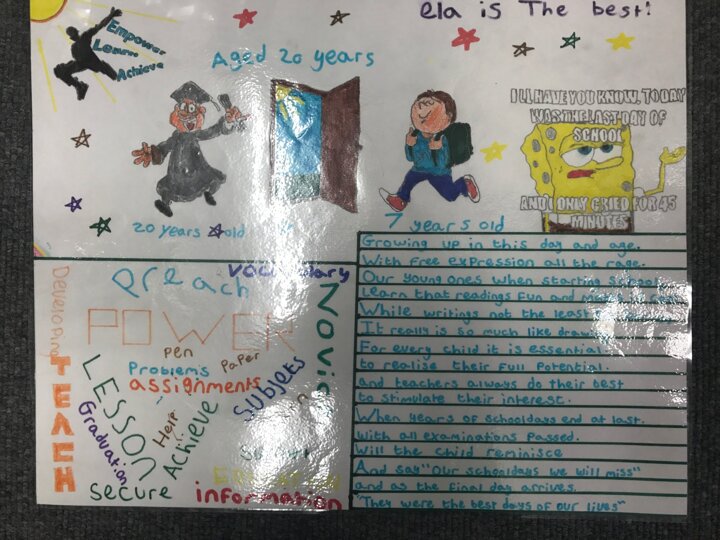 ela is The best!
Empower
Learn
Achieve
Aged 20 years
I'LL HAVE YOU KNOW, TODAY
WAS THE LAST DAY OF
SCHOOL
AND I ONLY CRIED FOR 45
MINUTES
20 years old
7 years old
Growing up in this day and age.
With free expression all the rage.
Our young ones when starting school
Learn that readings fun and
While writings not the least
It really is so much like
For every child it is essential.
to realise their full potential.
and teachers always do their best
to stimulate their interest.
When years of schooldays end at last.
With all examinations passed.
Will the child reminisce
And say "Our schooldays we will miss"
and as the final day arrives.
"They were the best days of our lives"
Developing
preach
vocabulary
POWER
Pen
Paper
Problems
assignments
Subjets
TEACH
LESSON
Graduation
Help
Achieve
secure
information